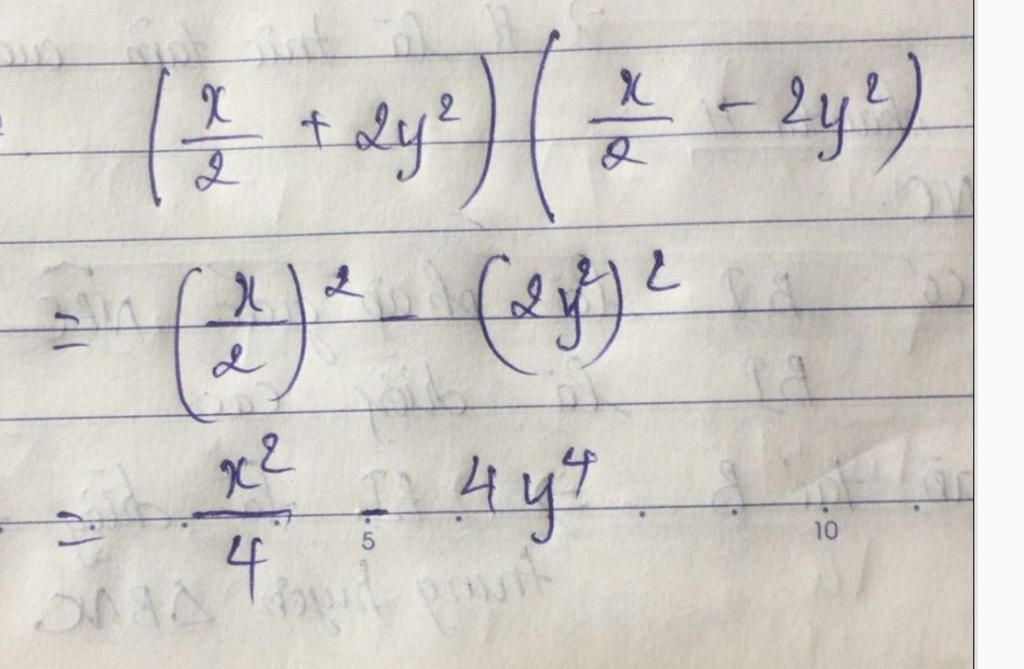 (x/2 + 2y²) (x/2 - 2y²)
= (x/2)² - (2y²)²
= x²/4 - 4y⁴
5 10